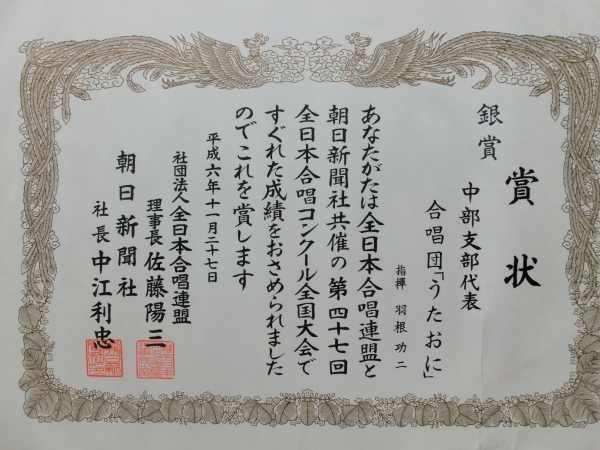 賞状
銀賞
中部支部代表
合唱団「うたおに」
指揮 羽根功二
あなたがたは全日本合唱連盟と
朝日新聞社共催の第四十七回
全日本合唱コンクール全国大会で
すぐれた成績をおさめられました
のでこれを賞します
平成六年十一月二十七日
社団法人全日本合唱連盟
理事長 佐藤陽三
朝日新聞社
社長 中江利忠